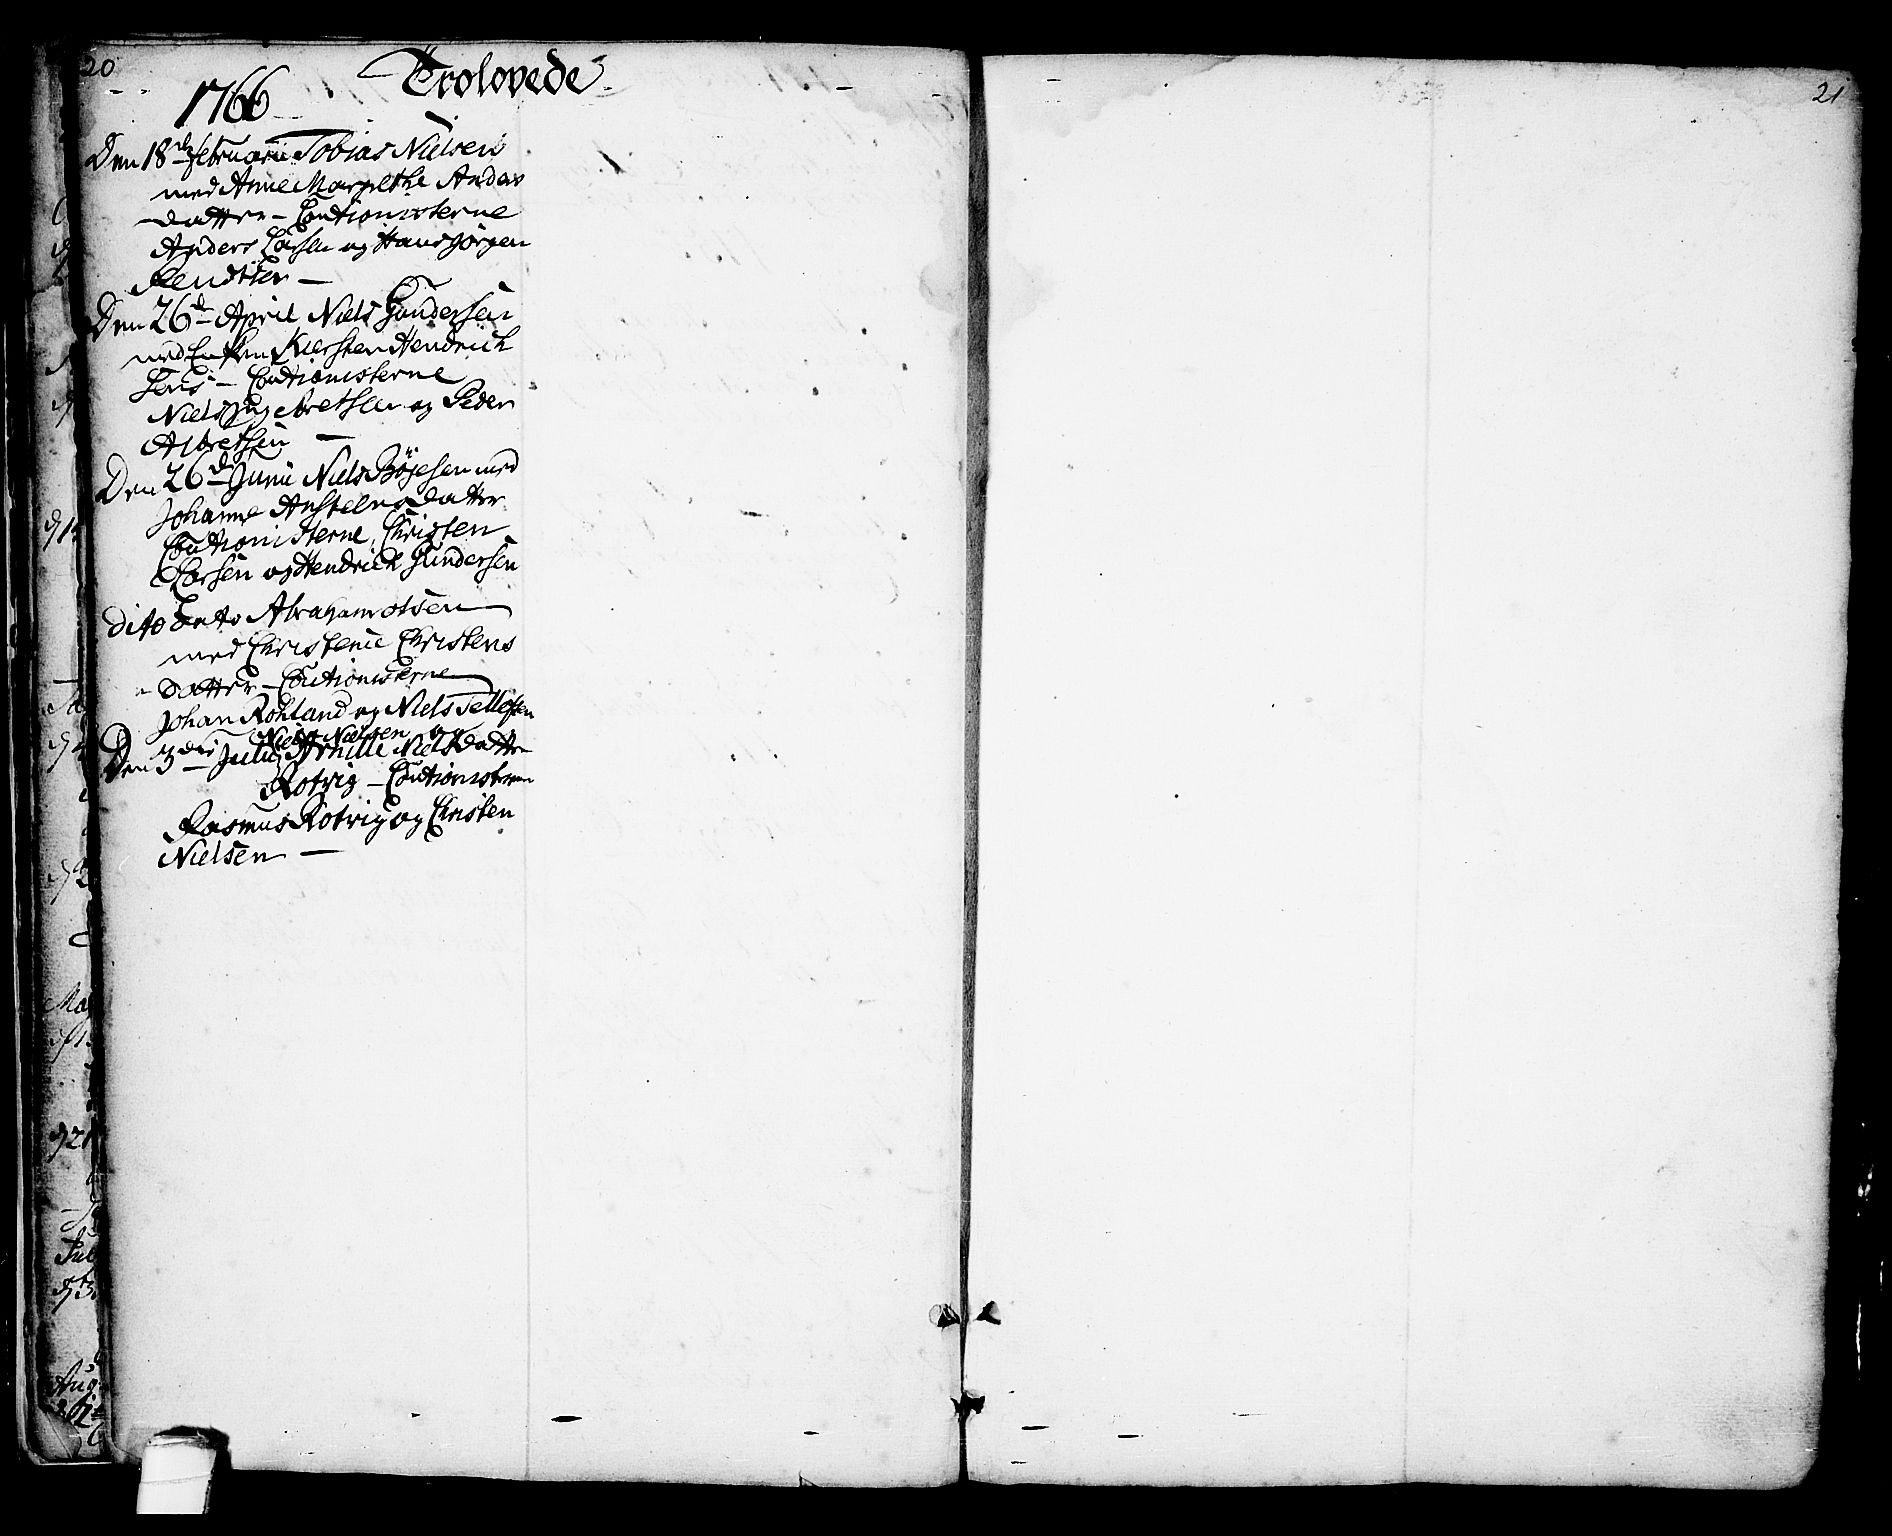 20
Trolovede
1766
Den 18de februarii Tobias Nielsen
med Anne Margrethe Anders
datter - Cautionisterne
Anders Larsen og Hans Jörgen
Bendtsen -
Den 26de April Niels Gundersen
med Enken Kiersten Hendrich
sens - Cautionisterne
Niels Ingebretsen og Peder
Albretsen -
Den 26de Junii Niels Böjesen med
Johanne Anstensdatter
Cautionisterne, Christen
Larsen og Hendrich Gundersen
dito Abrahamsen
med Christence Christens
datter - Cautionisterne
Johan Rohland og Niels Tellefsen
Niels Nielsen og
Den 3die Julii Nielsdatter
Rotvig - Cautionisterne
Rasmus Rotvig og Christen
Nielsen -
21